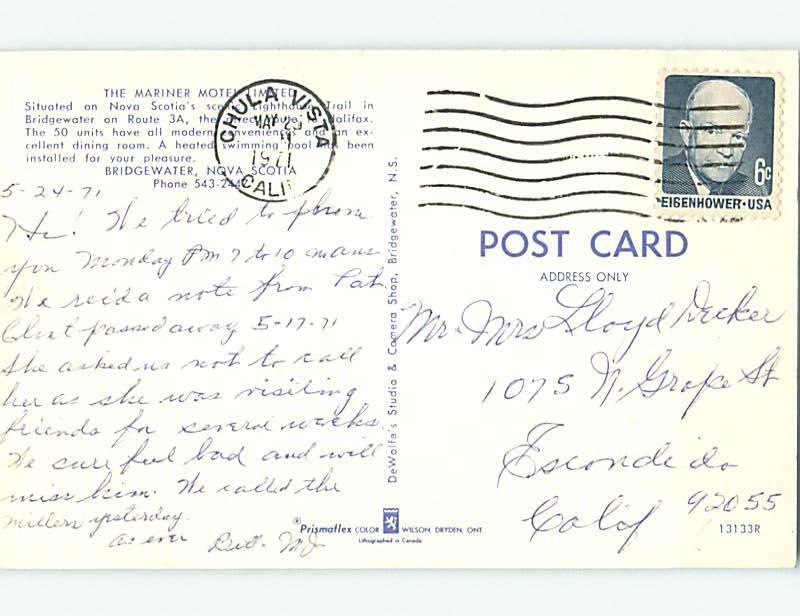 THE MARINER MOTEL LIMITED
Situated on Nova Scotia's scenic Lighthouse Trail in
Bridgewater on Route 3A, the direct route to Halifax.
The 50 units have all modern conveniences and an ex-
cellent dining room. A heated swimming pool has been
installed for your pleasure.
BRIDGEWATER, NOVA SCOTIA
Phone 543-244
5-24-71
Hi! We tried to phone
you Monday PM 7 to 10 
We rec'd a note from Pat.
Clint passed away 5-17-71
She asked us not to call
her as she was visiting
friends for several weeks.
We sure feel bad and will
miss him. We called the
Millers yesterday.
As ever
Bill. MJ
CHULA VISTA
MAY 25
1971
CALIF
6c
EISENHOWER·USA
POST CARD
ADDRESS ONLY
Mr. Mrs Lloyd Decker
1075 N. Grape St
Escondido
Calif 92055
DeWolfe's Studio & Camera Shop, Bridgewater, N.S.
Prismaflex COLOR WILSON, DRYDEN, ONT
Lithographed in Canada
13133R